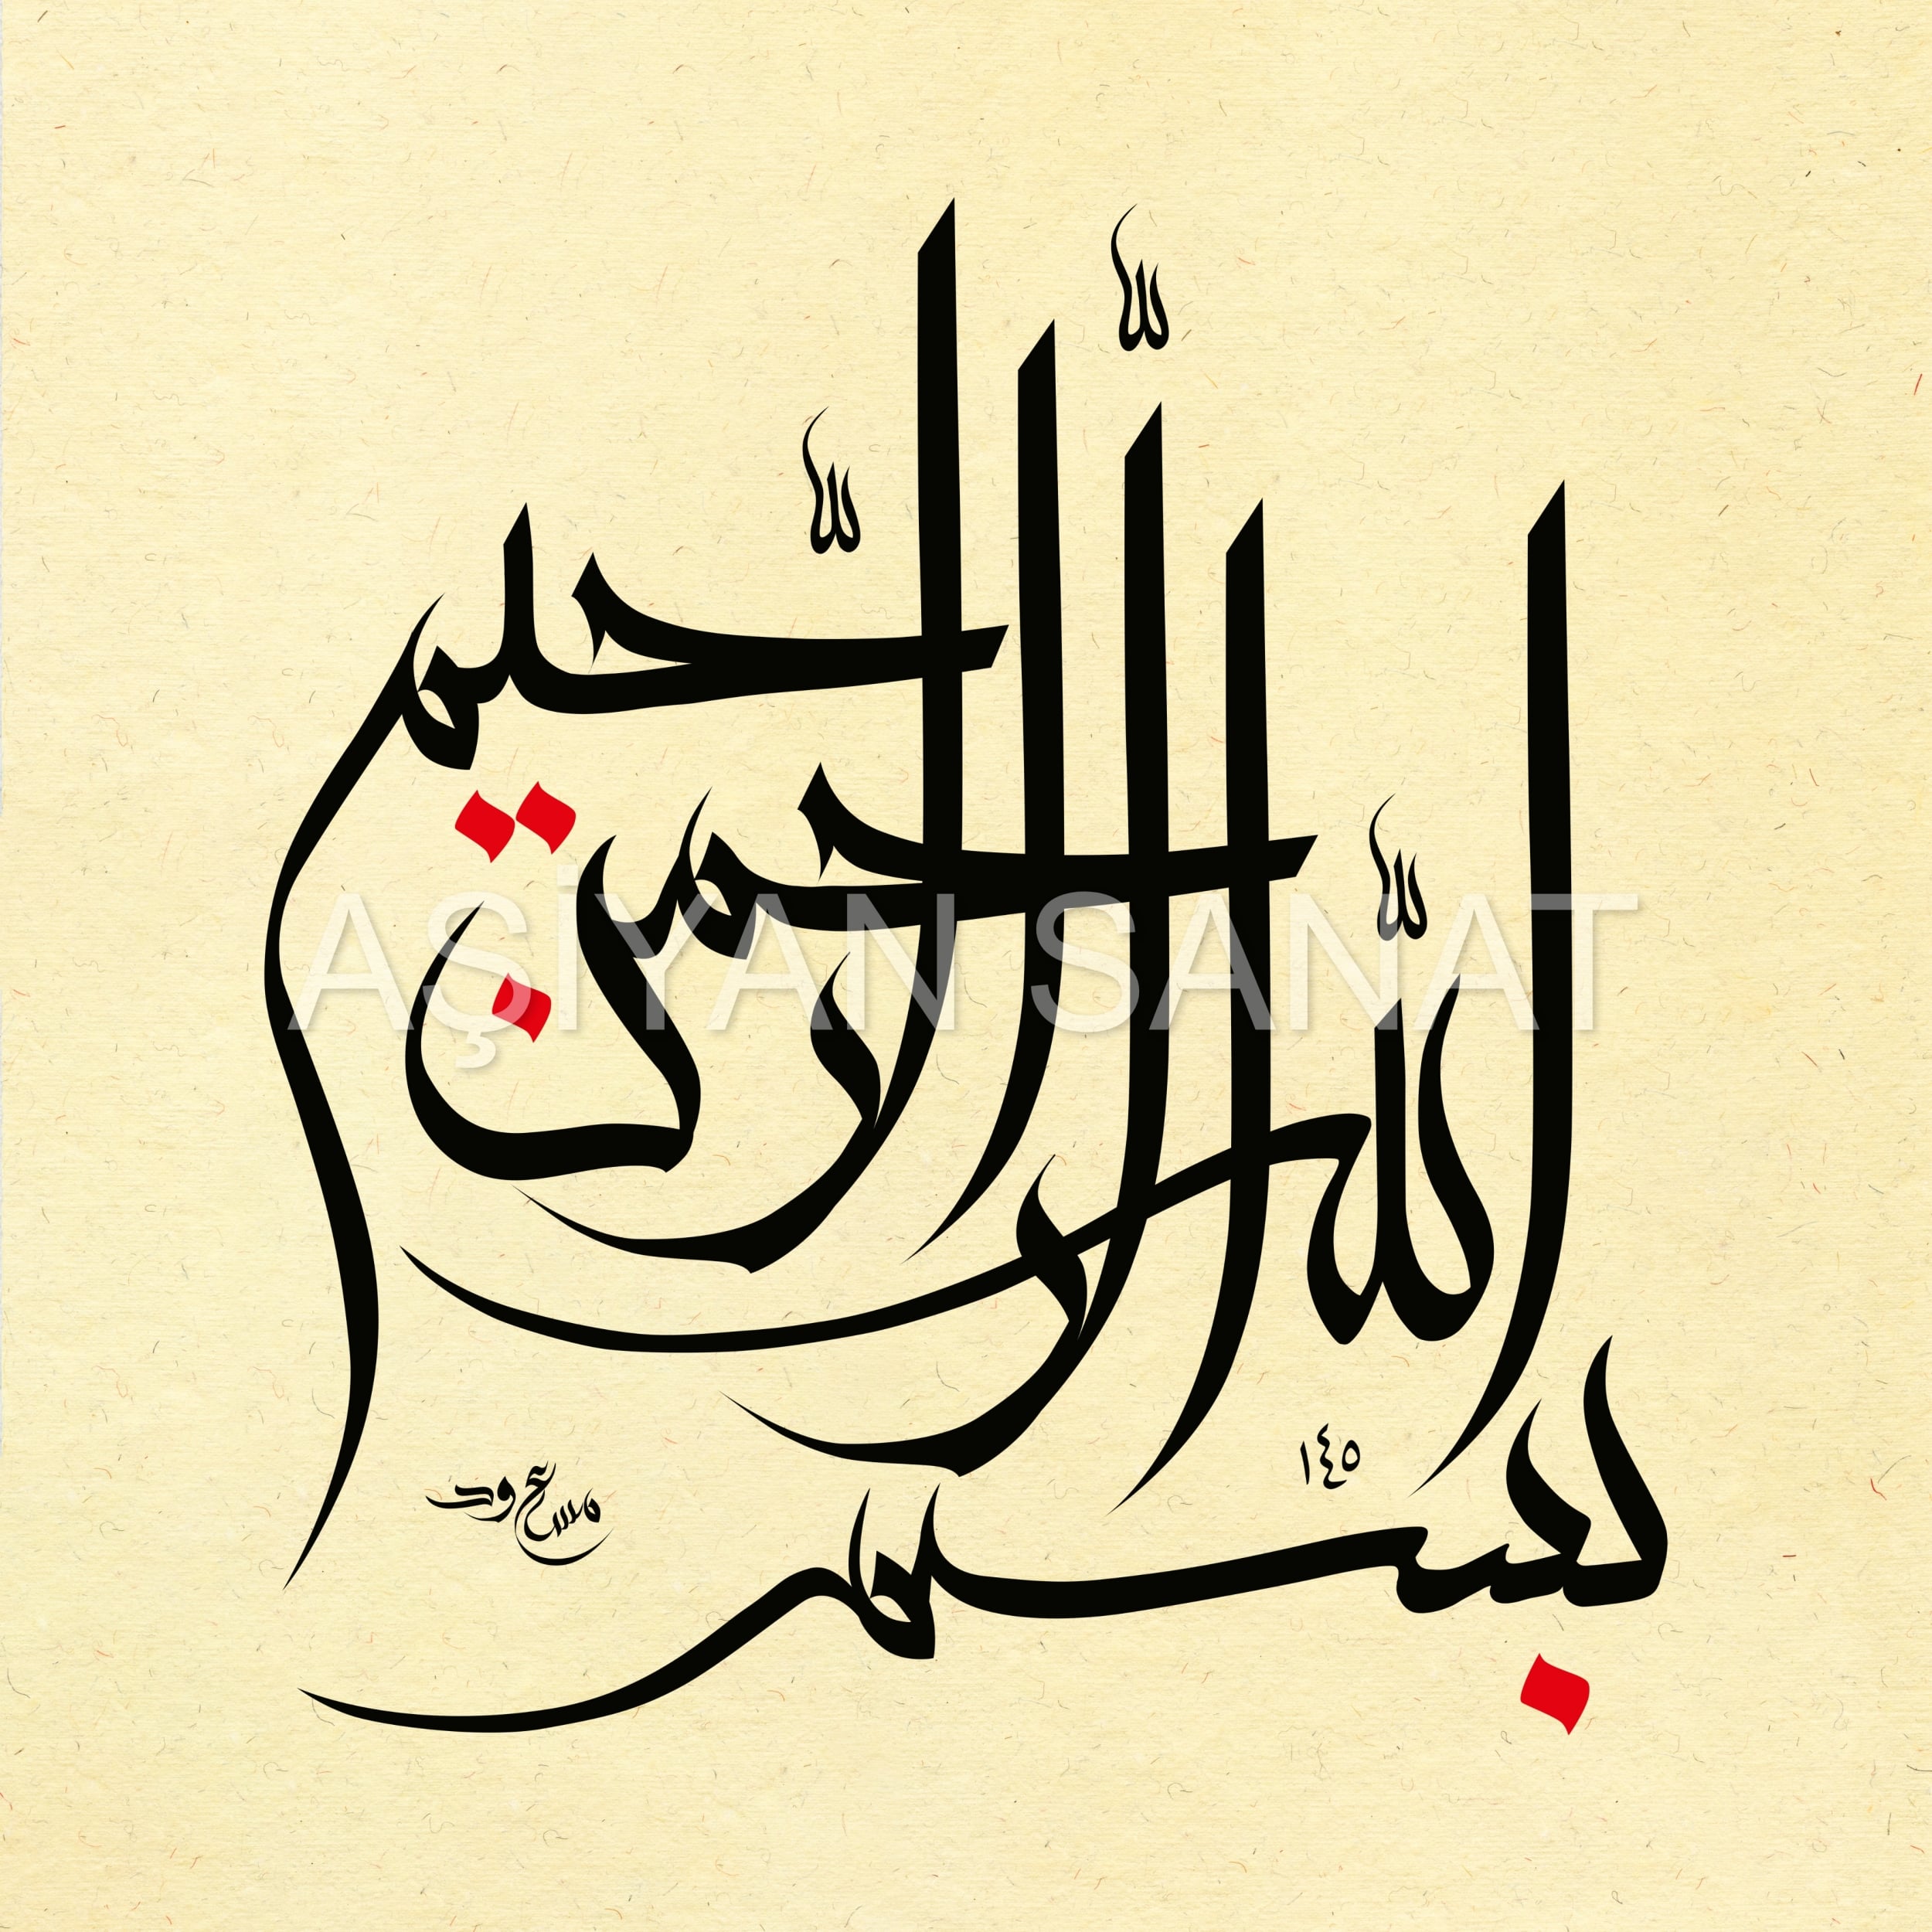 بسم الله الرحمن الرحيم
١٤٥
مسعود
AŞİYAN SANAT